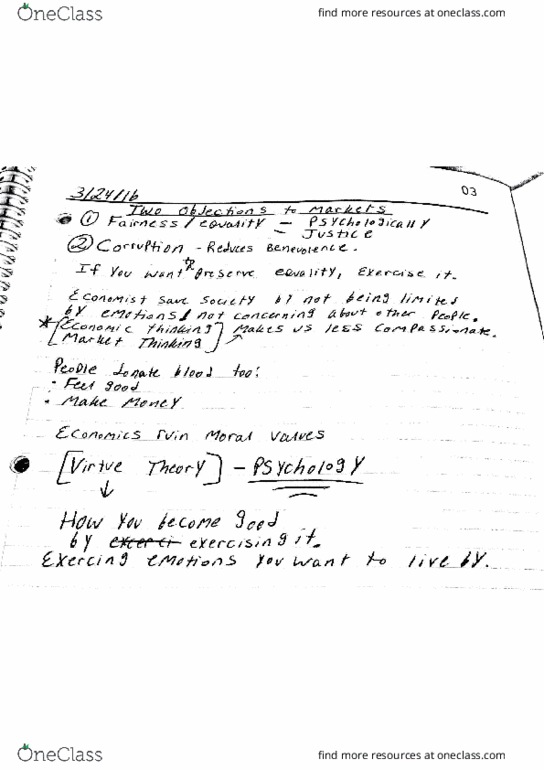 OneClass
find more resources at oneclass.com
3/24/16
03
Two Objections to Markets
① Fairness/equality – Psychologically
– Justice
② Corruption - Reduces Benevolence.
If You Want to Preserve equality, Exercise it.
Economist save society by not being limited
by emotions/not concerning about other People.
*[Economic thinking] Makes us less compassionate.
[Market Thinking]
People donate blood too:
· Feel good
· Make Money
Economics ruin Moral Values
[Virtue Theory] – Psychology
↓
How You become good
by excerci exercising it.
Exercing emotions You want to live by.
OneClass
find more resources at oneclass.com